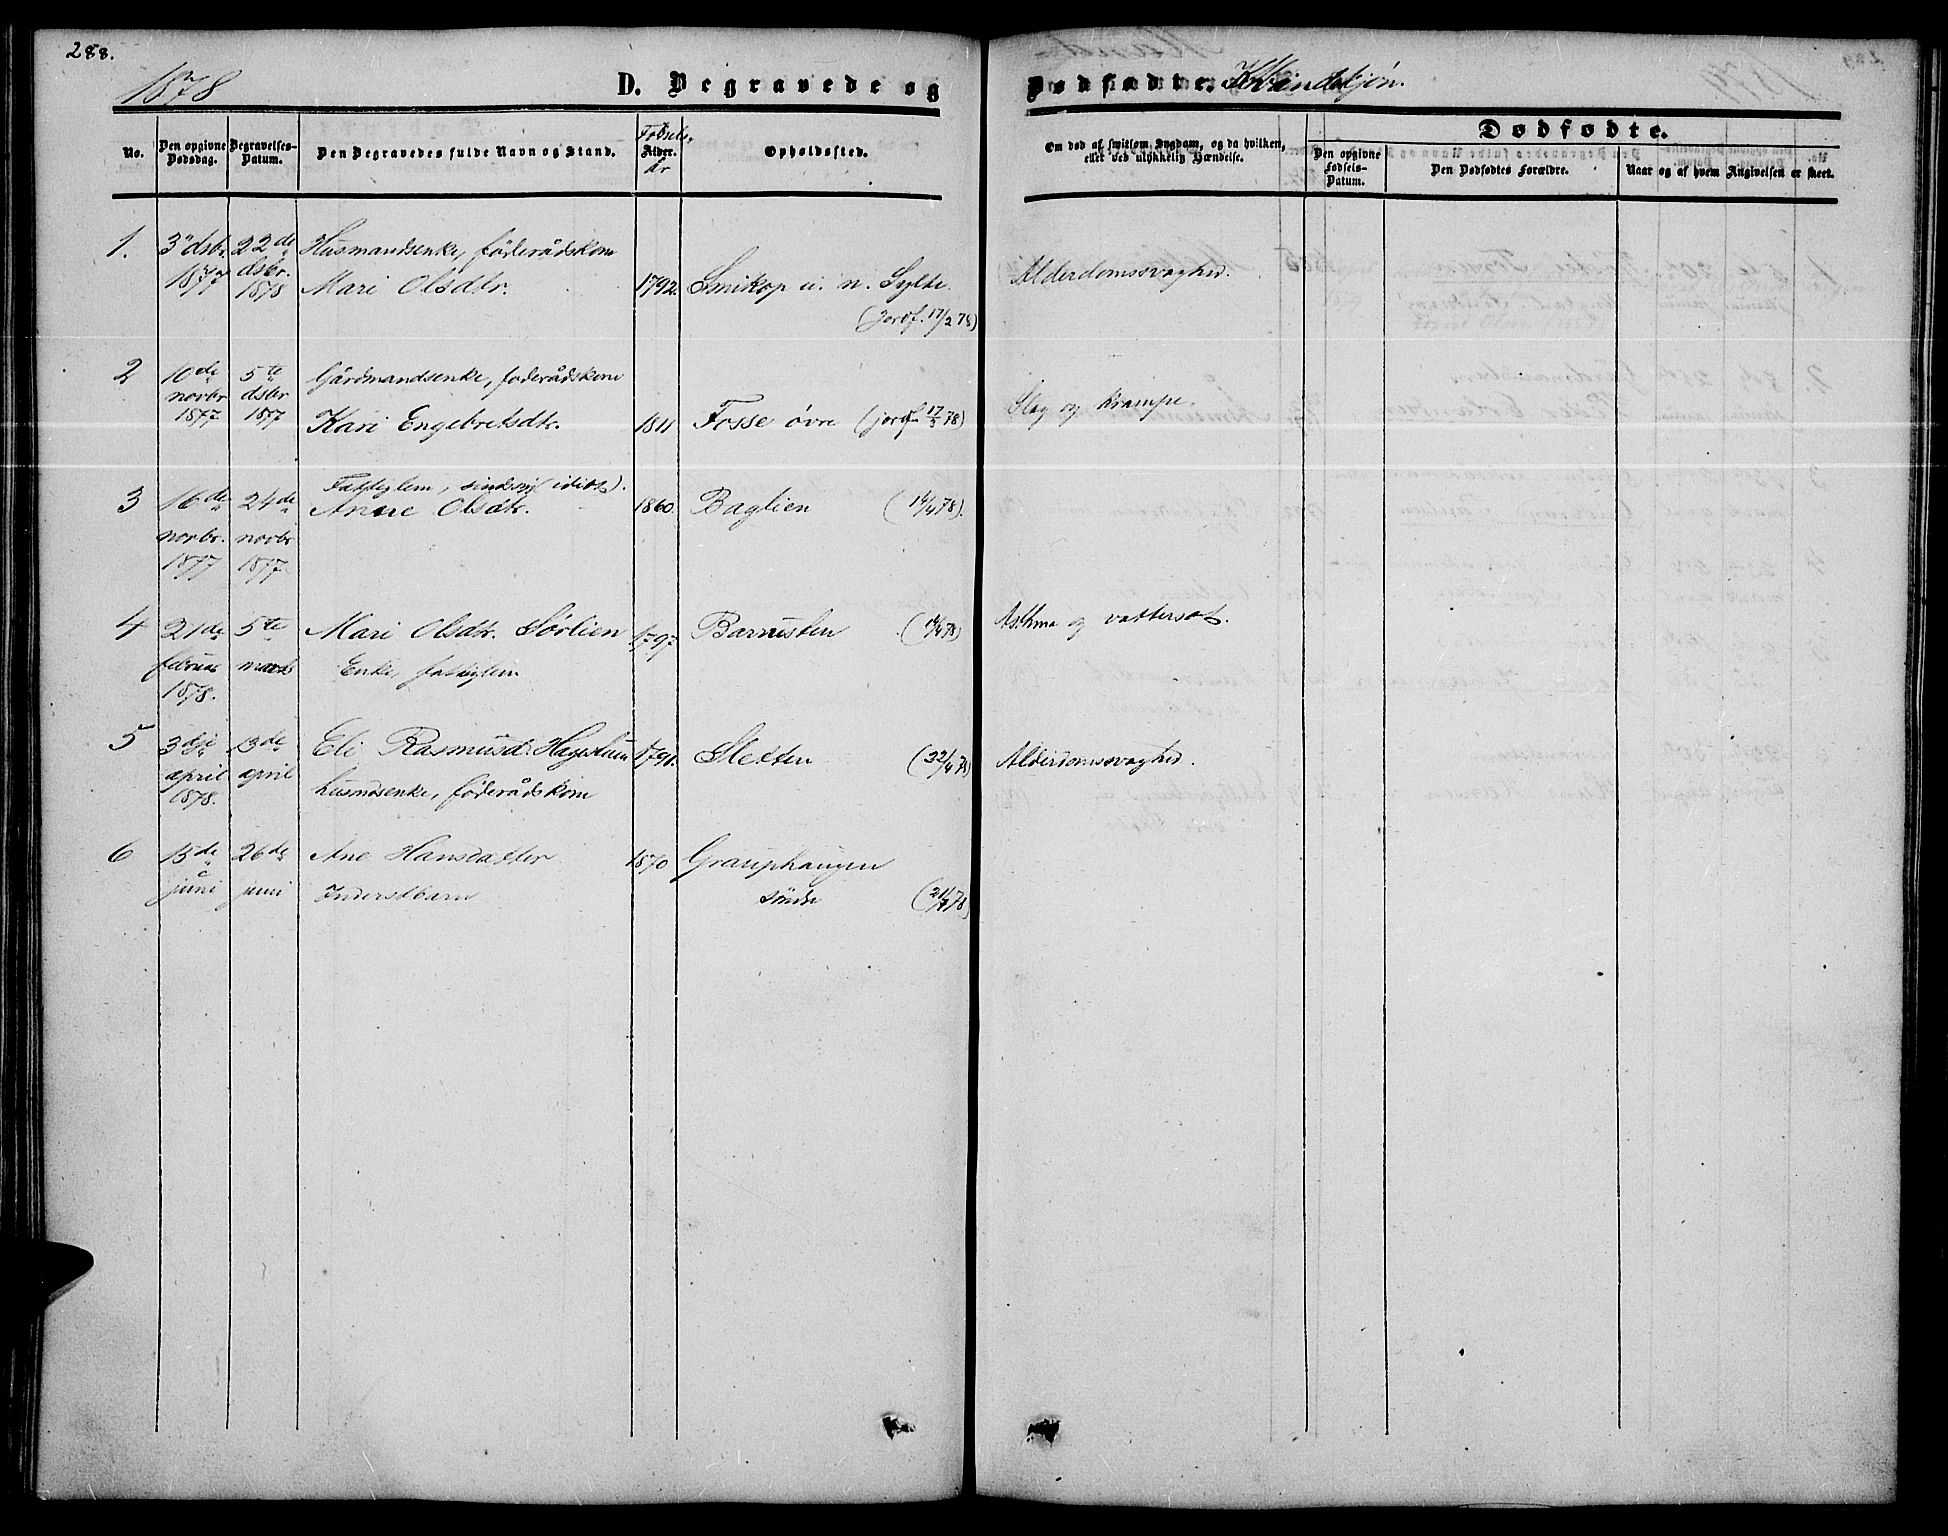 288.
1878
D. Begravede og Dødfødte. Kvindekjøn.
No.
Den opgivne Dødsdag.
Begravelses-Datum.
Den Begravedes fulde Navn og Stand.
Fødsels Alder. år
Opholdssted.
Om død af smitsom Sygdom, og da hvilken, eller ved ulykkelig Hændelse.
Dødfødte.
Den opgivne Fødsels-Datum.
Den Dødfødtes Forældre.
Naar og af hvem Angivelsen er skeet.
1. 3die dsbr. 22de Husmandsenke, føderådskone
1877 dsbr. 1878 Mari Olsdtr. 1792. u. n. Sylte Alderdomssvaghed.
(jordf. 17/2 78)
2 10de 5te Gårdmandsenke, foderådskone
novbr dsbr
1877 1877 Kari Engebretsdtr. 1811 Fosse øvre (jordf 17/3 78) Slag og Krampe.
3 16de 24de Fattiglem, sindssyg (idiot).
Anne Olsdtr. 1860. Baglien (14/4 78).
novbr. novbr
1877 1877
4 21de 5te Mari Olsdtr. Sørlien 1797. (14/4 78) Asthma og vattersot.
februar marts Enke, fattiglem
1878.
5 3die 13de Eli Rasmusd. Hagestuen 1791. Sletten (22/4 78) Alderdomssvaghed.
april april husmdsenke, føderådskone
1878.
6 15de 26de Ane Hansdatter 1870 Grauphaugen
juni juni Inderstbarn søndre (21/7 78)